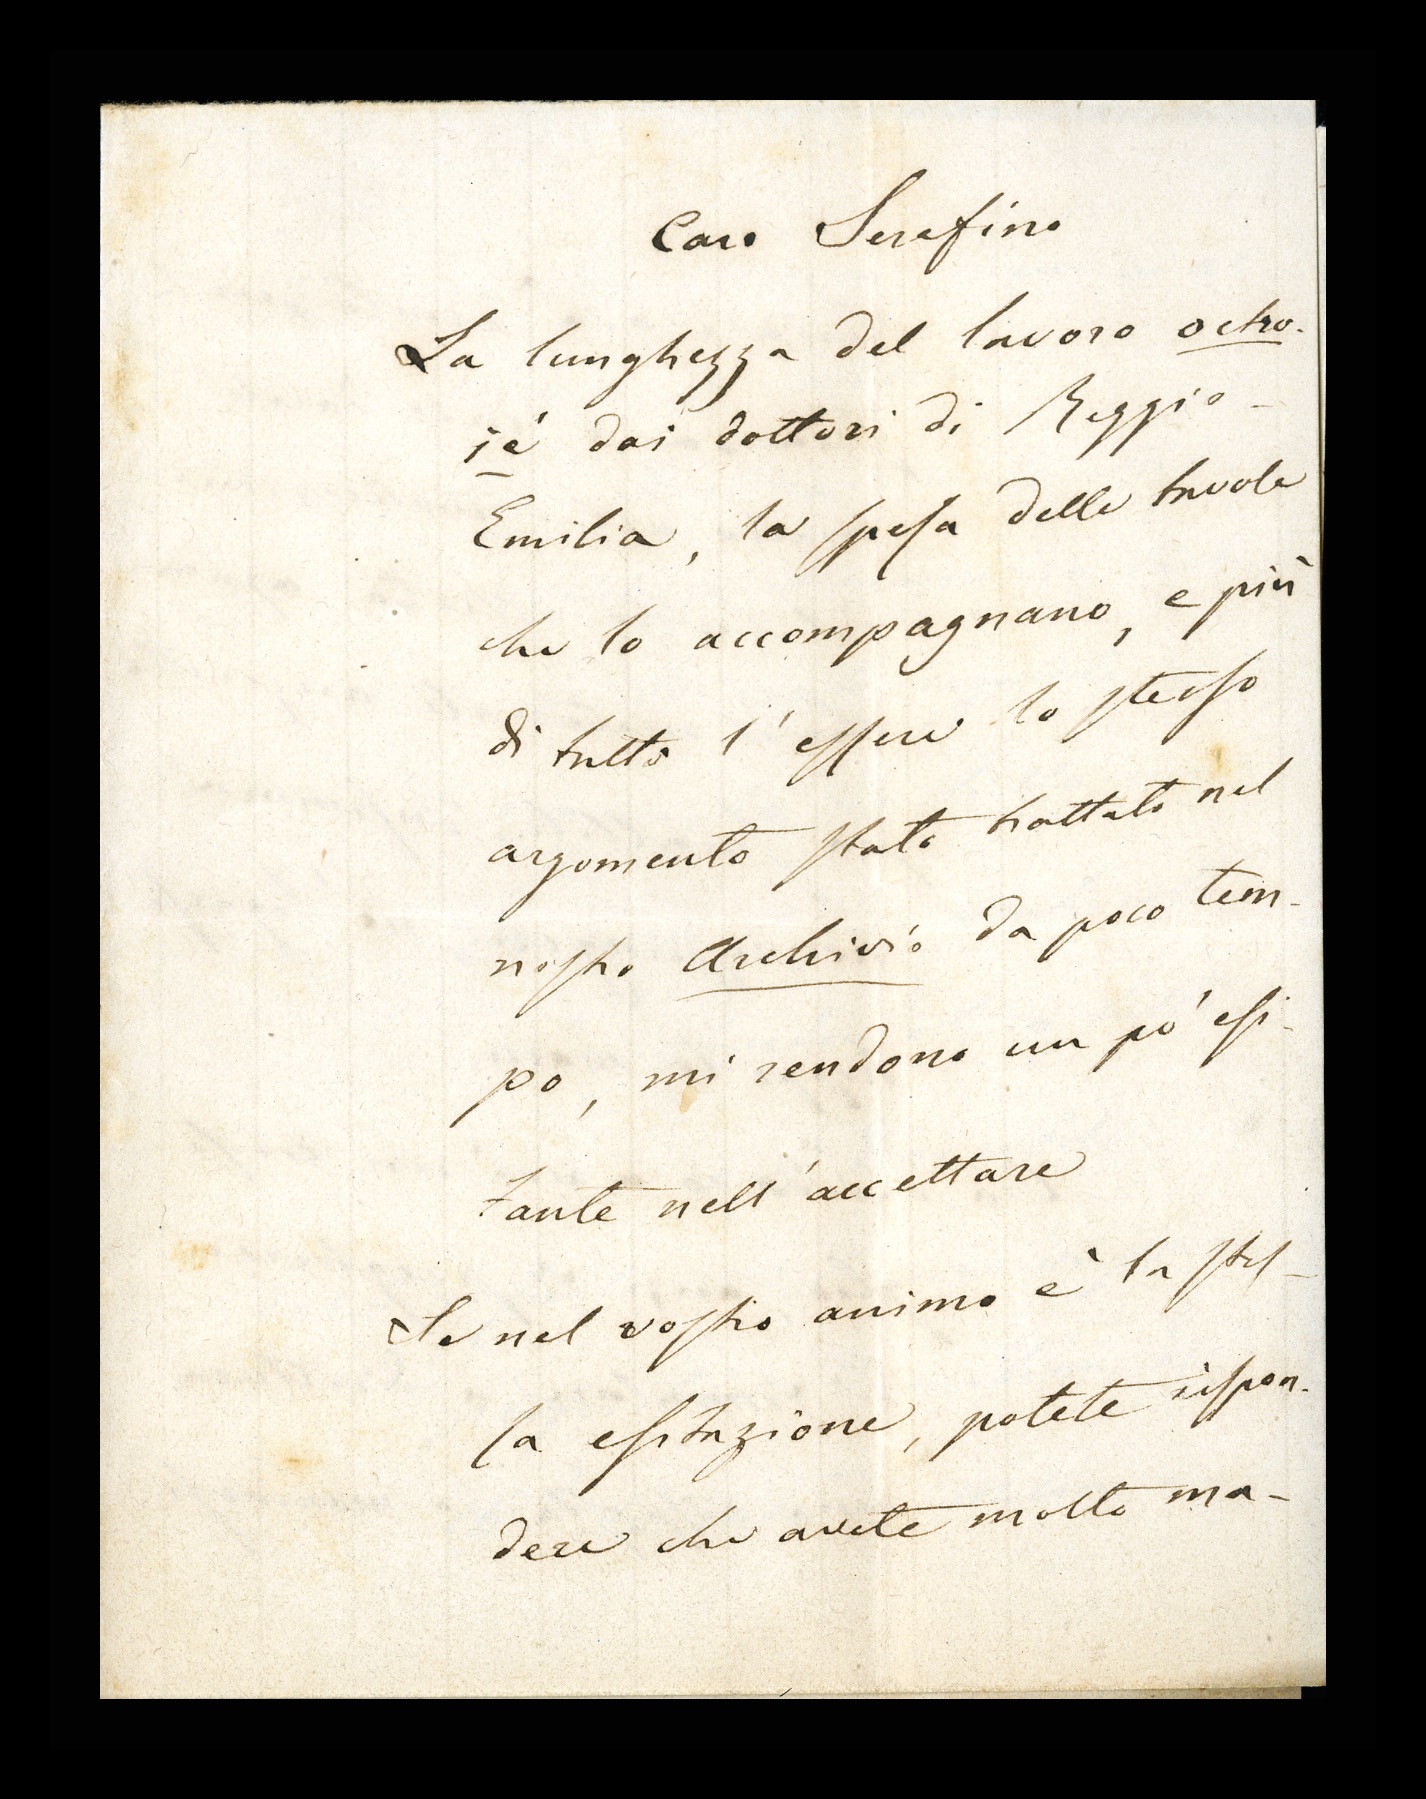 Caro Serafino
La lunghezza del lavoro octro-
ié dai dottori di Reggio-
Emilia, la spesa delle tavole
che lo accompagnano, e più
di tutto l'essere lo stesso
argomento stato trattato nel
nostro Archivio da poco tem-
po, mi rendono un pò' esi-
tante nell'accettare
Se nel vostro animo è la stes-
sa esitazione, potete rispon-
dere che avete molto ma-